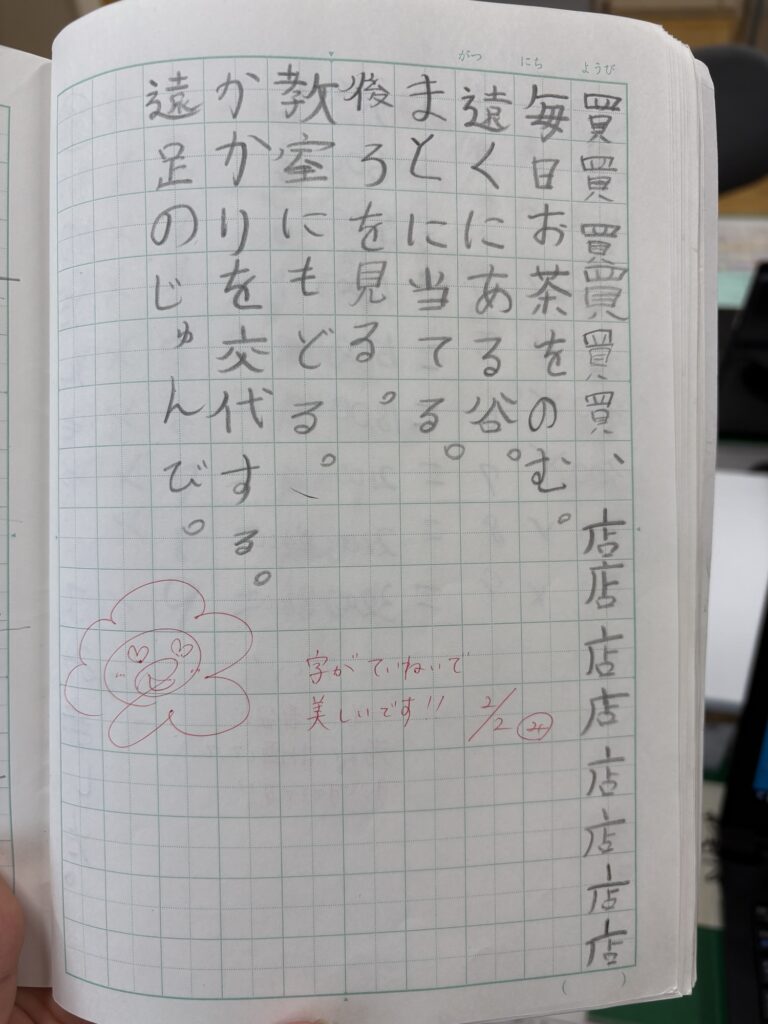 がつ にち ようび
買買買買買買、店店店店店店店店
毎日お茶をのむ。
遠くにある谷。
まとに当てる。
後ろを見る。
教室にもどる。
かかりを交代する。
遠足のじゅんび。
字がていねいで
美しいです!!
2/2
( )